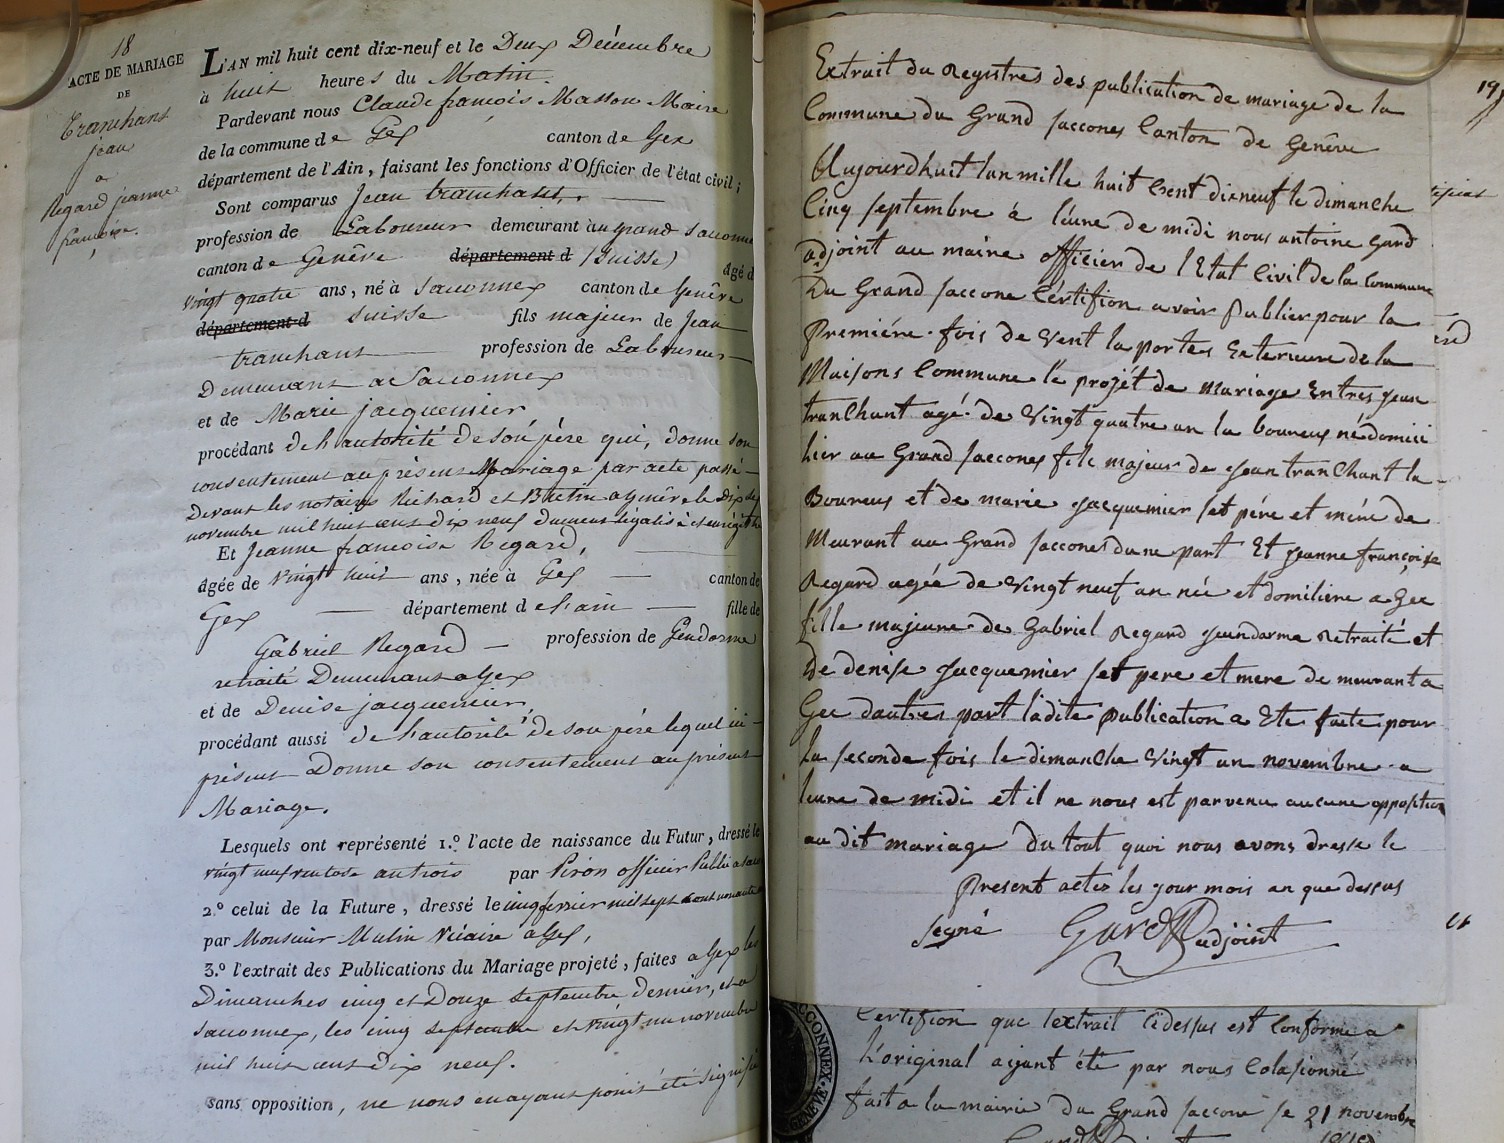 18
ACTE DE MARIAGE
DE
Tranchant
Jean
a
Regard jeanne
françoise.
L'AN mil huit cent dix-neuf et le Deux Décembre
à huit heures du Matin.
Pardevant nous Claude françois Masson Maire
de la commune de Gex canton de Gex
département de l'Ain, faisant les fonctions d'Officier de l'état civil;
Sont comparus Jean tranchant,
profession de Laboureur demeurant au grand Saconnex
canton de Genêve département d (Suisse) âgé d
vingt quatre ans, né à Saconnex canton de Genêve
département d Suisse fils majeur de Jean
tranchant profession de Laboureur
Demeurant a Saconnex
et de Marie jacquemier
procédant de l'autorité de son père qui, donne son
consentement au présent Mariage par acte passé
Devant les notaires Richard et Butin a genêve le Dix
novembre mil huit cent dix neuf dument légalisé et enrégistré
Et Jeanne françoise Regard,
âgée de vingt huit ans, née à Gex canton de
Gex département de l'ain fille de
Gabriel Regard profession de Gendarme
retraité Demeurant a Gex
et de Denise jacquemier,
procédant aussi de l'autorité de son père lequel ici
présent Donne son consentement au présent
Mariage.
Lesquels ont représenté 1.º l'acte de naissance du Futur, dressé le
vingt neuf ventose an trois par Piron officier Public a
2.º celui de la Future, dressé le cinq février mil sept cent nonante
par Monsieur Mulin Vicaire à Gex,
3.º l'extrait des Publications du Mariage projeté, faites a Gex les
Dimanches cinq et Douze septembre dernier, et a
Saconnex, les cinq septembre et vingt un novembre
mil huit cent dix neuf.
sans opposition, ne nous en ayant point été signifié
Extrait du Registres des publication de mariage de la
Commune du Grand Saccones Canton de Genêve
Aujourdhuit lan mille huit Cent dixneuf le dimanche
Cinq Septembre à leune de midi nous antoine Gard
adjoint au maire officier de l'Etat Civil de la Commune
Du Grand Saccone Certifion avoir publier pour la
Premiére fois de vent la portes Exterieure de la
Maisons Commune le projét de mariage Entres jean
tranChant agé de vingt quatre an la boureus né domici
lier au Grand Saccones fils majeur de jean tranChant la
Boureus et de marie jacquemier set père et mére de
Meurant au Grand Saccones dune part Et jeanne françoise
Regard agée de vingt neuf an née et domiliere a Gex
fille majeure de Gabriel Regard jeundarme Retraité et
De denise jacquemier set pere et mere de meurant a
Gex dautres part ladite publication a Ete faite pour
la seconde fois le dimanche vingt un novembre a
leune de midi et il ne nous est parvenu aucune opposition
au dit mariage Du tout quoi nous avons dresse le
Present actes les jour mois an que dessus
Segné Gard adjoint
19
et
Certifion que lextrait Cidessus est Conforme a
L'original aijant été par nous Colasionné
fait a la mairie du Grand Saccone le 21 novembre
CONNEX. GENÈVE